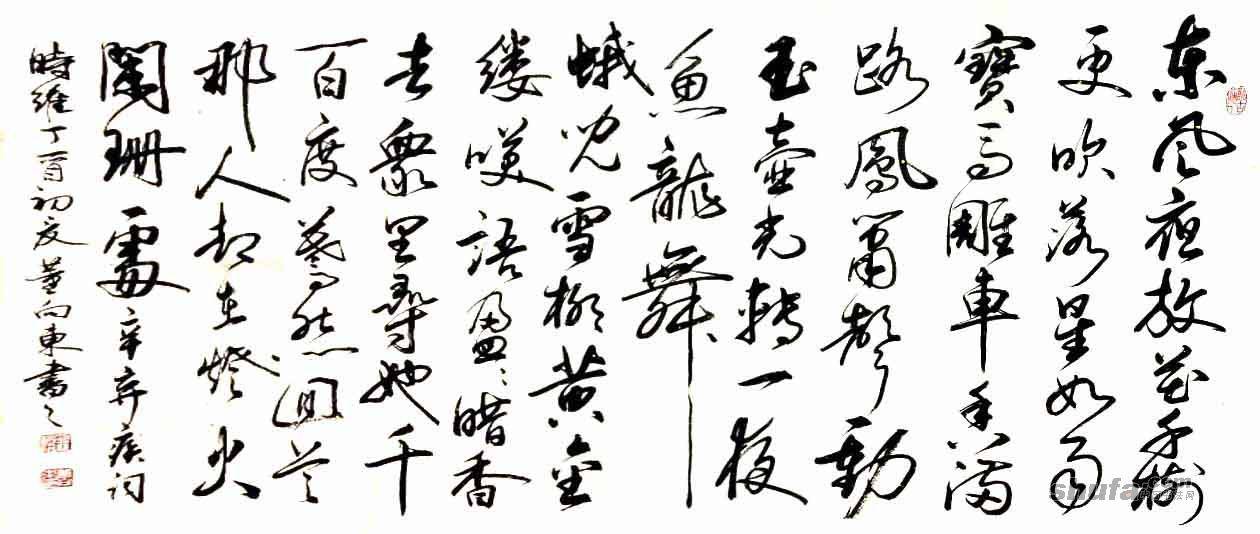 東风夜放花千樹
更吹落星如雨
寳马雕車香满
路鳳箫聲動
玉壶光轉一夜
魚龍舞
蛾児雪柳黄金
缕笑語盈〻暗香
去衆里尋她千
百度蓦然回首
那人却在燈火
闌珊處辛弃疾词
時維丁酉初夏董向東書之